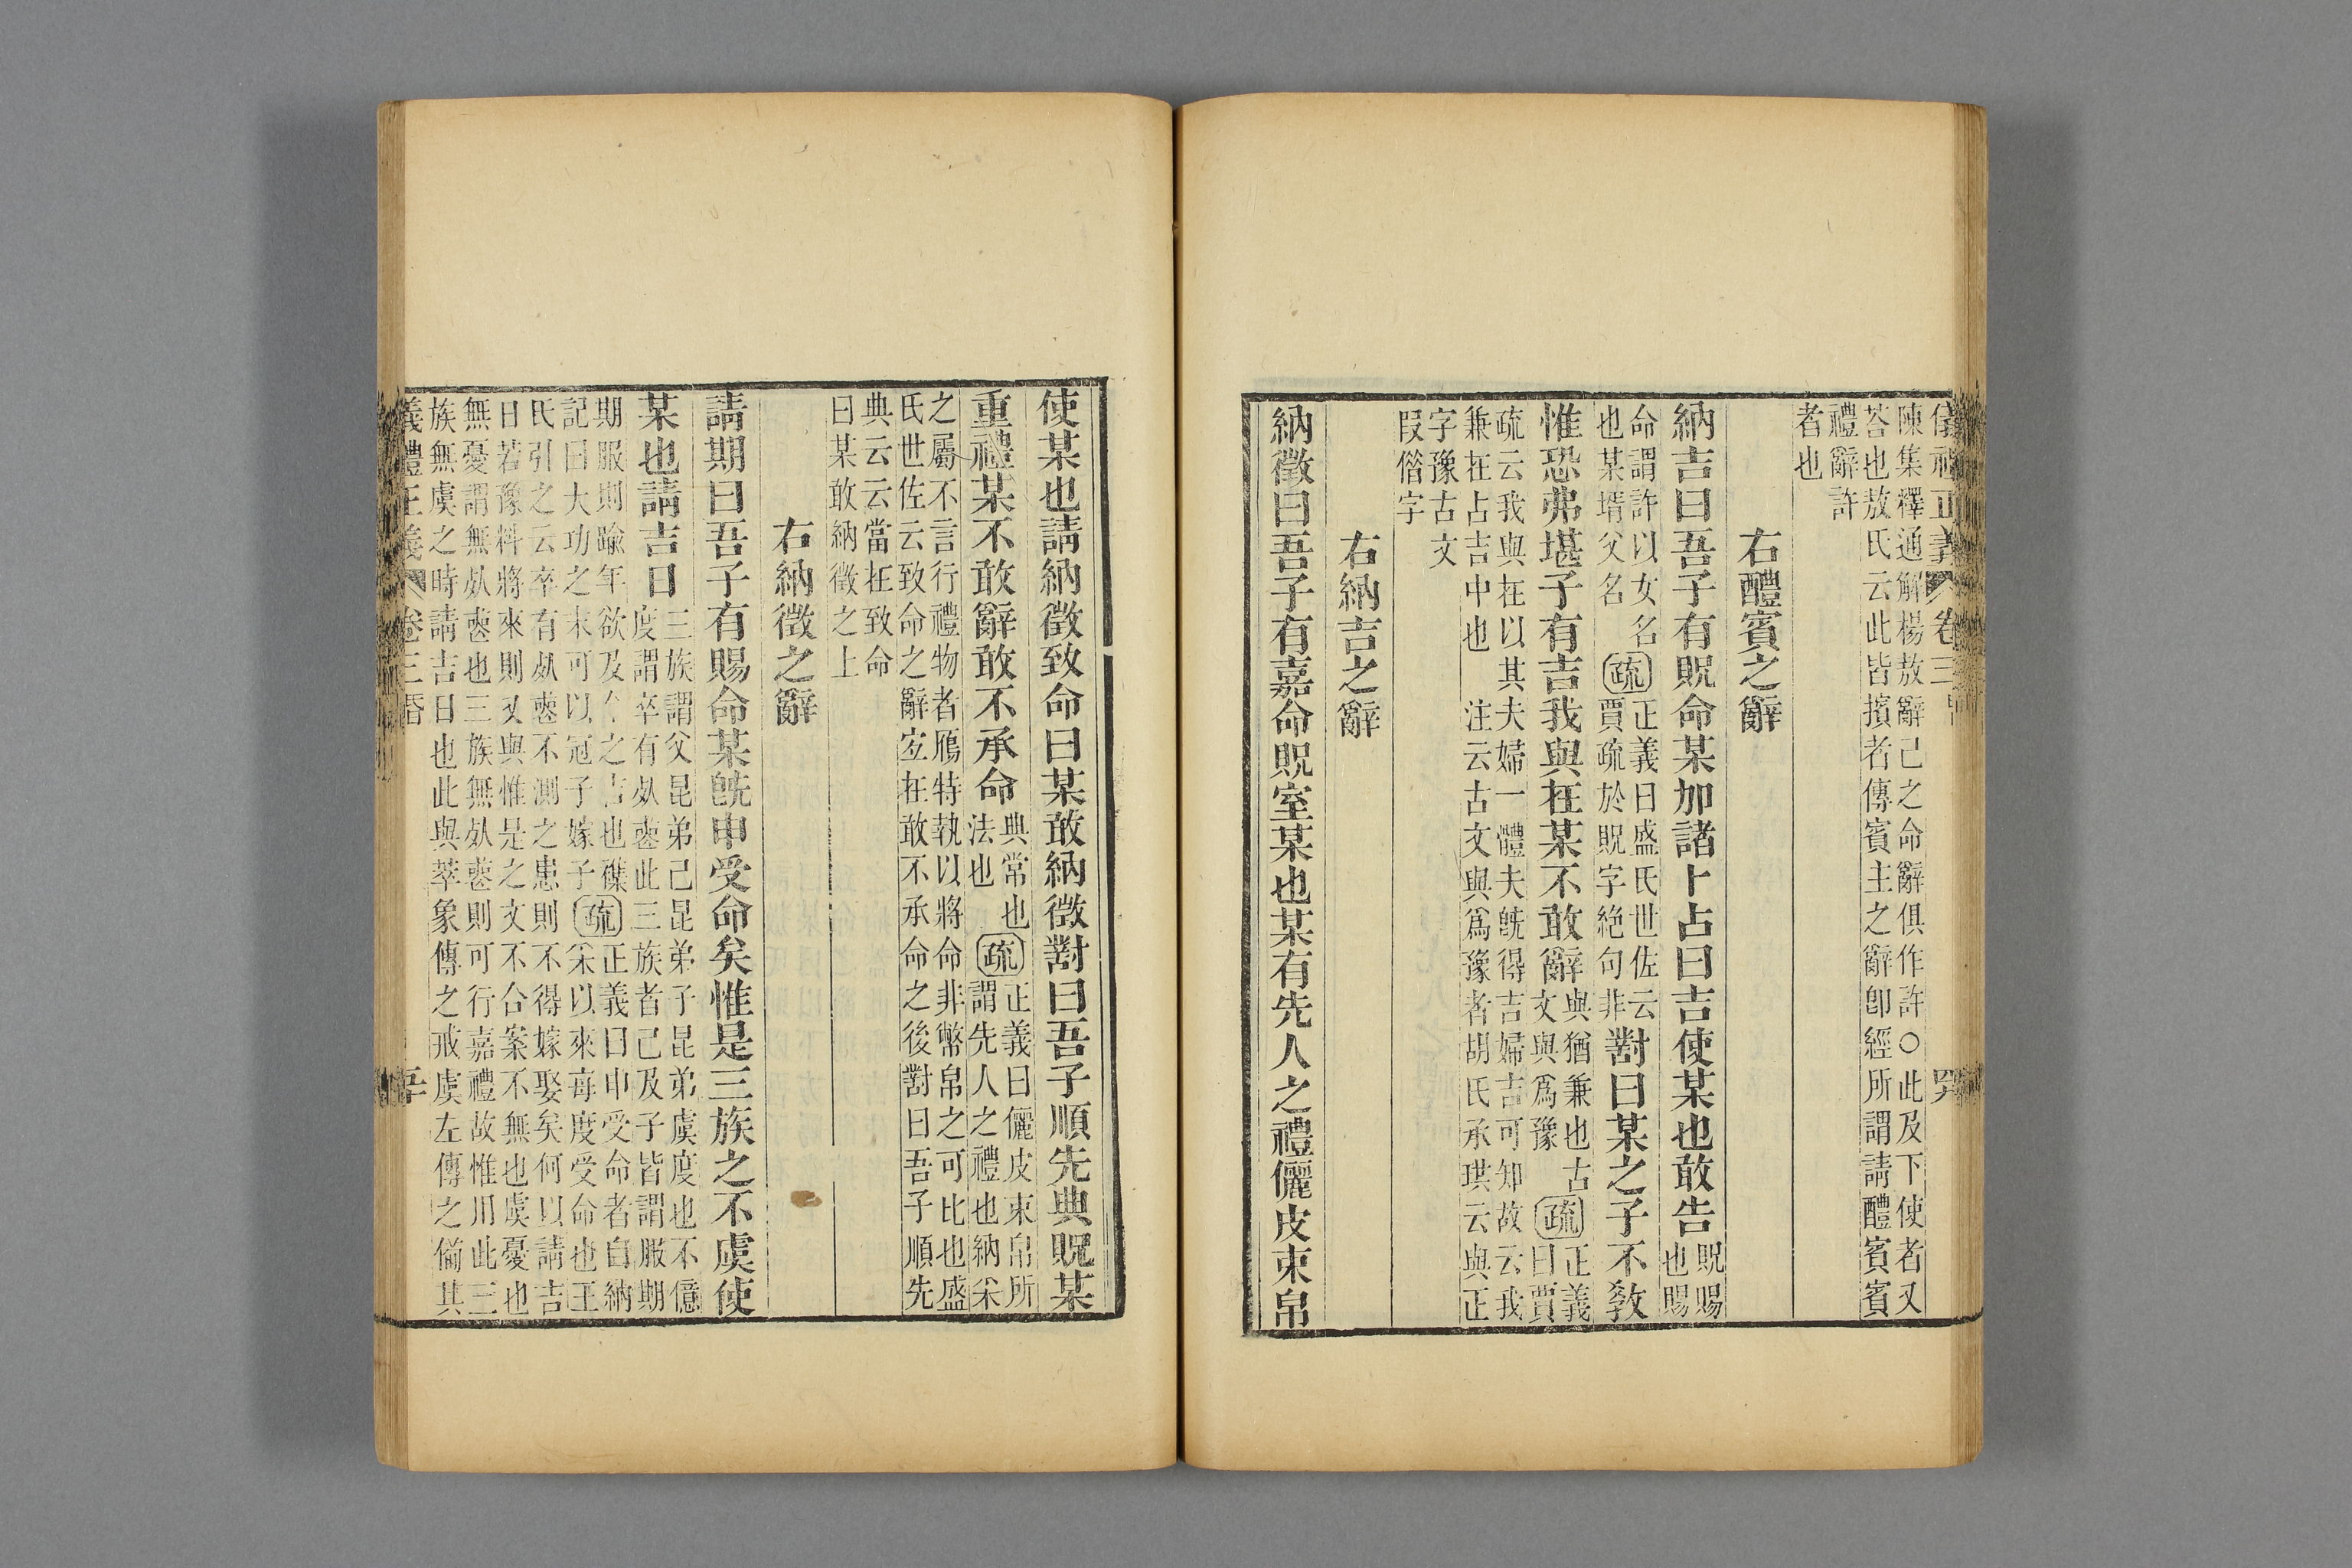 儀禮正義 卷三
陳集釋通解楊敖辭己之命辭俱作許○此及下使者又
荅也敖氏云此皆擯者傳賓主之辭卽經所謂請醴賓賓
禮辭許
者也
右醴賓之辭
納吉曰吾子有貺命某加諸卜占曰吉使某也敢告貺賜也賜
命謂許以女名也某壻父名疏正義曰盛氏世佐云賈疏於貺字絶句非對曰某之子不敎
惟恐弗堪子有吉我與在某不敢辭與猶兼也古文與爲豫疏正義曰賈
疏云我與在以其夫婦一體夫旣得吉婦吉可知故云我
兼在占吉中也 注云古文與爲豫者胡氏承珙云與正
字豫古文
叚借字
右納吉之辭
納徵曰吾子有嘉命貺室某也某有先人之禮儷皮束帛
使某也請納徵致命曰某敢納徵對曰吾子順先典貺某
重禮某不敢辭敢不承命典常也法也疏正義曰儷皮束帛所謂先人之禮也納采
之屬不言行禮物者鴈特執以將命非幣帛之可比也盛
氏世佐云致命之辭宜在敢不承命之後對曰吾子順先
典云云當在致命
曰某敢納徵之上
右納徵之辭
請期曰吾子有賜命某旣申受命矣惟是三族之不虞使
某也請吉日三族謂父昆弟己昆弟子昆弟虞度也不億度謂卒有死喪此三族者己及子皆謂服期
期服則踰年欲及今之吉也雜記曰大功之末可以冠子嫁子疏正義曰申受命者自納采以來每度受命也王
氏引之云卒有死喪不測之患則不得嫁娶矣何以請吉
日若豫料將來則又與惟是之文不合案不無也虞憂也
無憂謂無死喪也三族無死喪則可行嘉禮故惟用此三
族無虞之時請吉日也此與萃象傳之戒虞左傳之備其
義禮正義 卷三昏